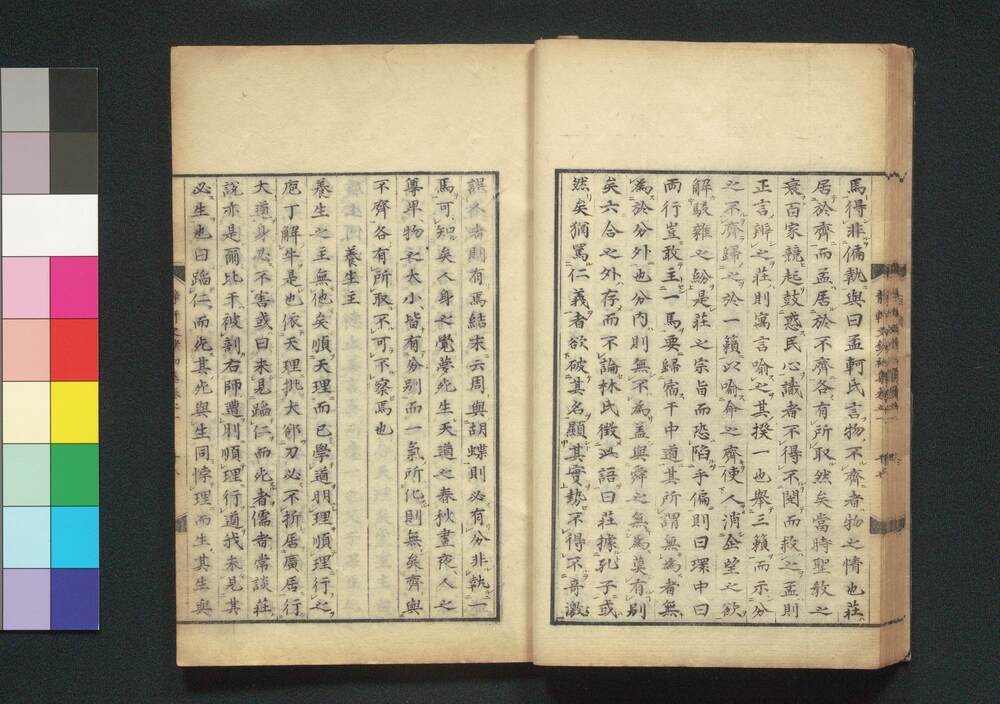 馬得非偏執與曰孟軻氏言物不齊者物之情也莊
居於齊而孟居於不齊各有所取然矣當時聖教之
衰百家競起鼓惑民心識者不得不閔而救之孟則
正言辨之莊則寓言喻之其揆一也舉三籟而示分
之不齊歸之於一籟以喻命之齊使人消企望之欲
解駁雜之紛是莊之宗旨而恐陷乎偏則曰環中曰
兩行豈敢主一馬要歸宿于中道其所謂無為者無
為於分外也分內則無不為蓋與舜之無為莫有別
矣六合之外存而不論林氏徵此語曰莊據孔子或
然矣猶罵仁義者欲破其名顯其實勢不得不奇激
則有焉結末云周與胡蝶則必有分非執一
馬可知矣人身之覺夢死生天道之春秋晝夜人之
尊卑物之大小皆有分別而一氣所化則無矣齊與
不齊各有所取不可不察焉也
養生主
養生之主無他矣順天理而已學道明理順理行之
庖丁解牛是也依天理批大郤刀必不折居廣居行
大道身必不害或曰未見蹈仁而死者儒者常談莊
說亦是爾比干被割右師遭刖順理行道我未見其
必生也曰蹈仁而死其死與生同悖理而生其生與